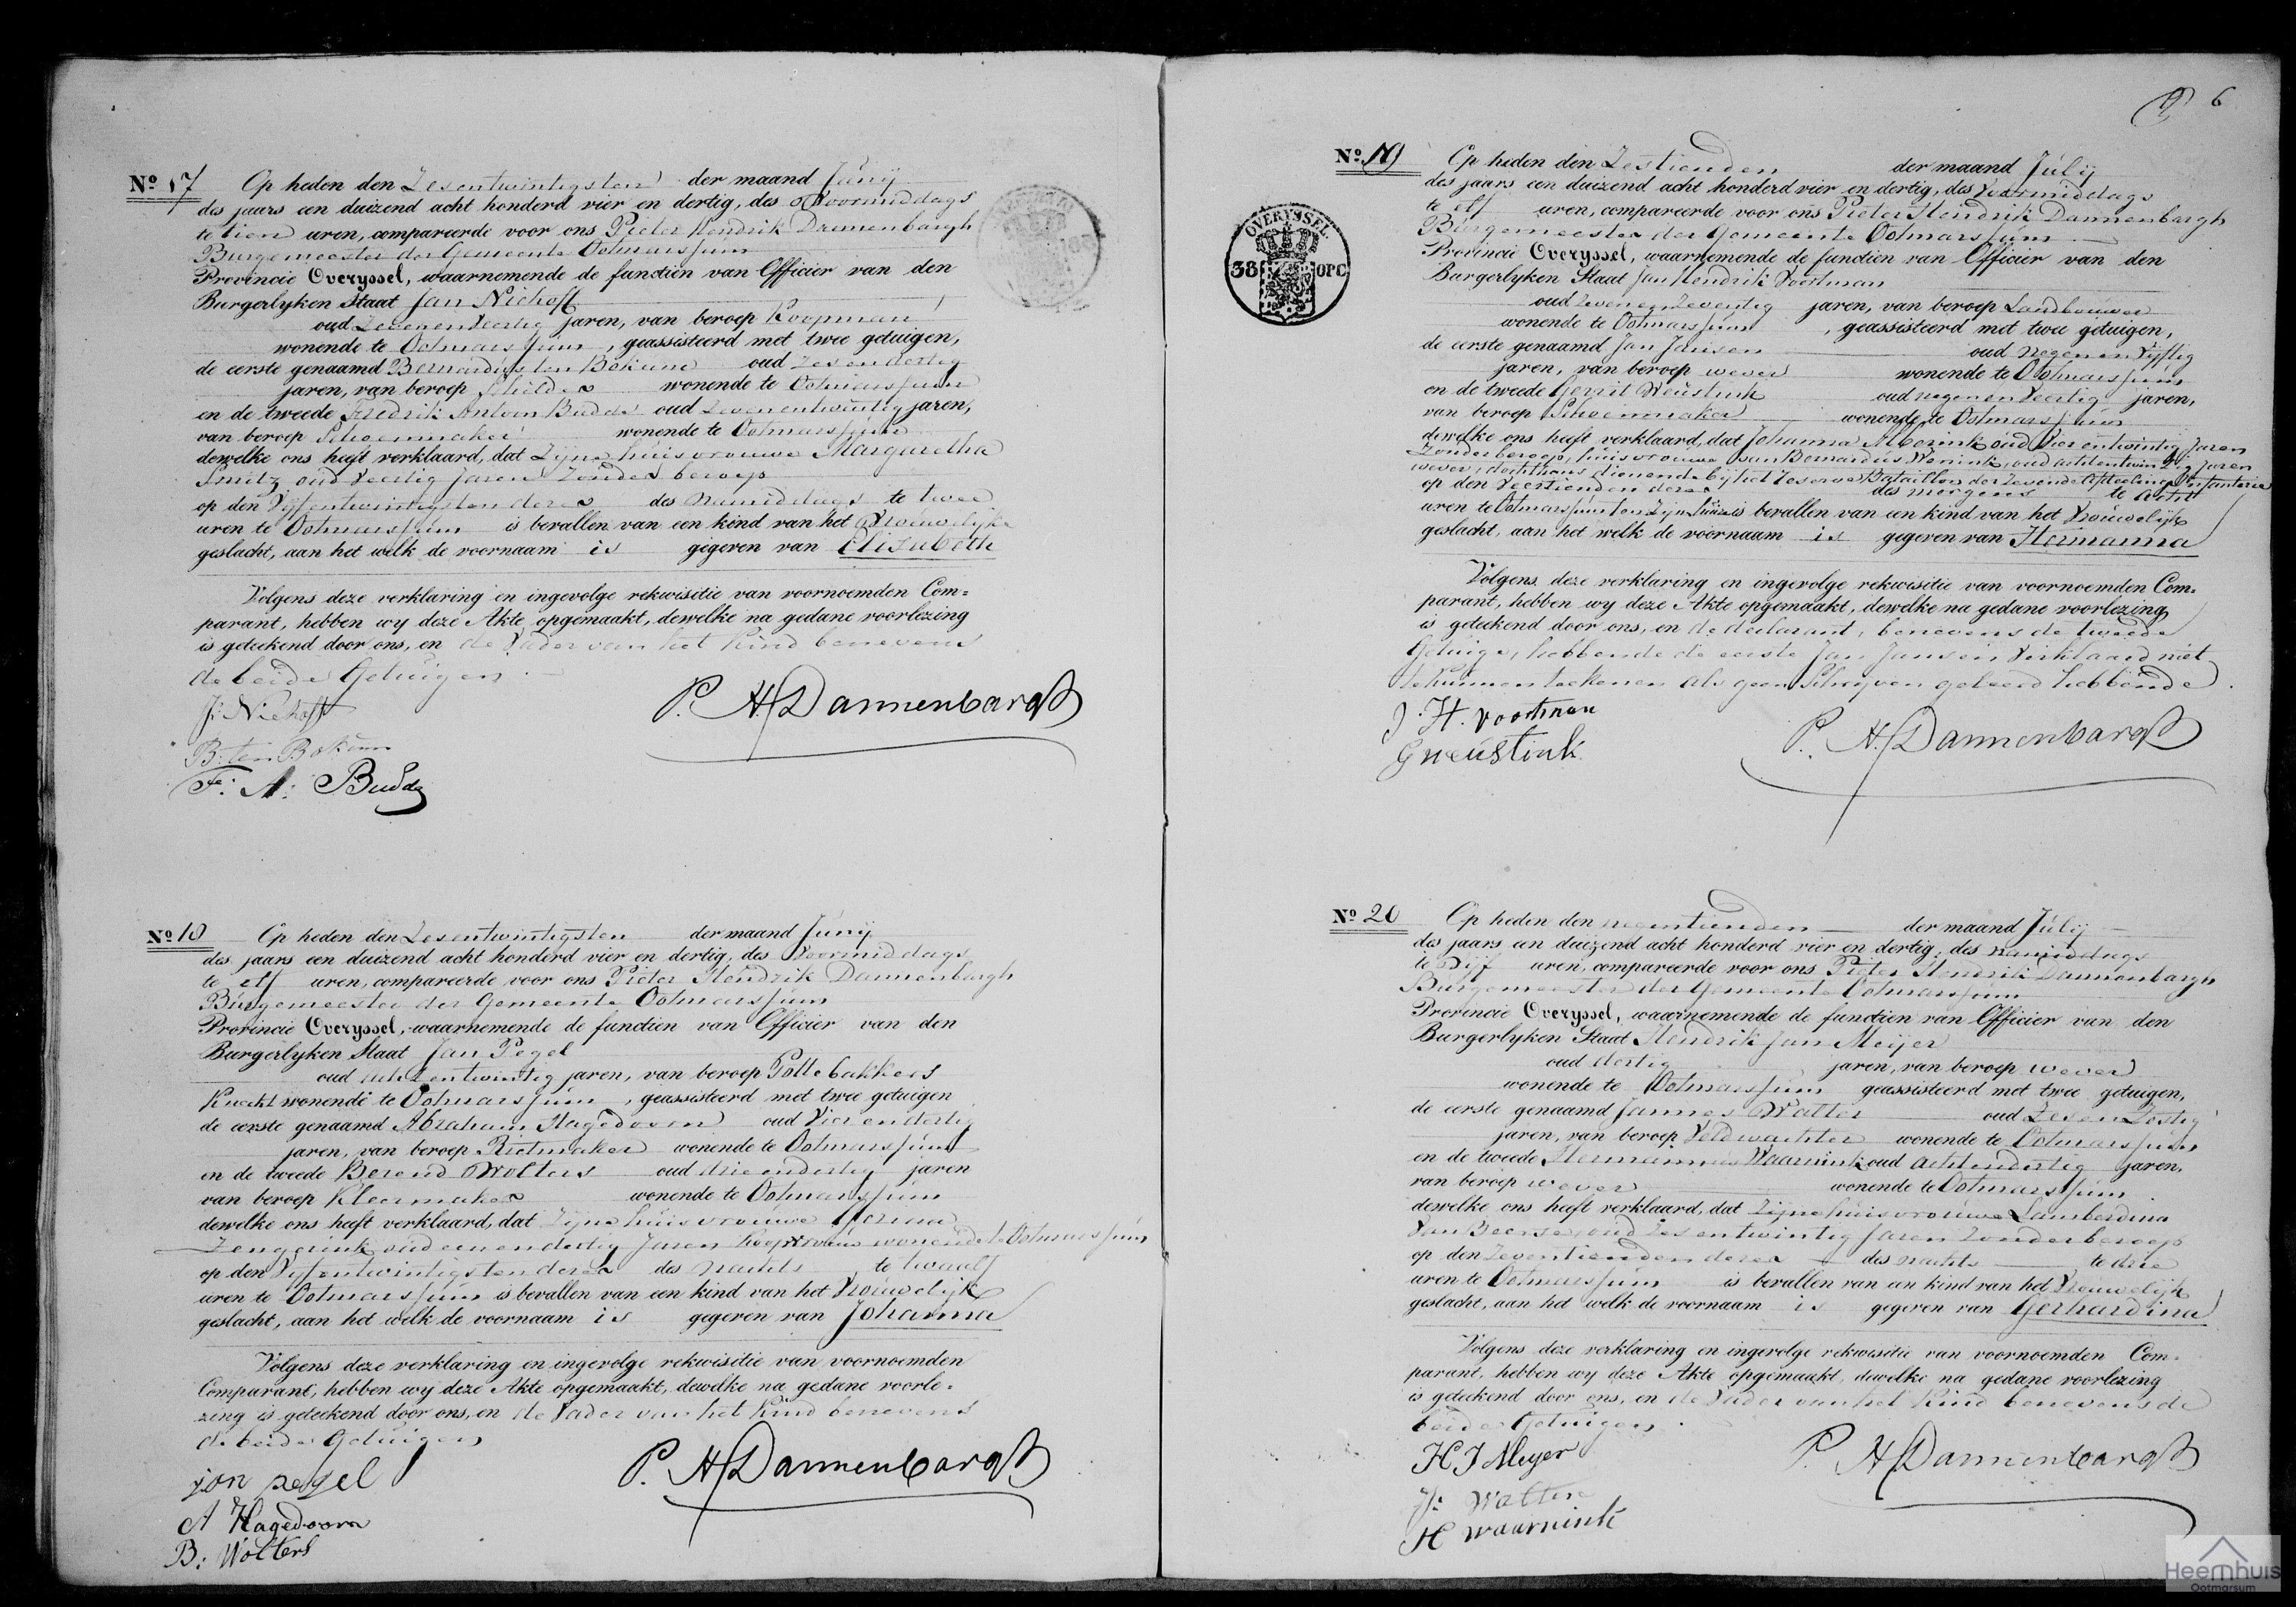 Nº 17 Op heden den Zesentwintigsten der maand Junij
des jaars een duizend acht honderd vier en dertig, des Voormiddags
te tien uren, compareerde voor ons Pieter Hendrik Dannenbargh
Burgemeester der Gemeente Ootmarssum
Provincie Overyssel, waarnemende de functien van Officier van den
Burgerlyken Staat Jan Niehoff
oud Zevenenveertig jaren, van beroep Koopman
wonende te Ootmarssum, geassisteerd met twee getuigen,
de eerste genaamd Bernardus ten Bokum oud Zesendertig
jaren, van beroep Schilder wonende te Ootmarssum
en de tweede Fredrik Antoon Budde oud Zevenentwintig jaren,
van beroep Schoenmaker wonende te Ootmarssum
dewelke ons heeft verklaard, dat Zijne huisvrouwe Margaretha
Smitz oud Veertig Jaren Zonder beroep
op den Vijfentwintigsten dezer des namiddags te twee
uren te Ootmarssum is bevallen van een kind van het Vrouwelijke
geslacht, aan het welk de voornaam is gegeven van Elisabeth
Volgens deze verklaring en ingevolge rekwisitie van voornoemden Com=
parant, hebben wy deze Akte opgemaakt, dewelke na gedane voorlezing
is geteekend door ons, en de Vader van het Kind benevens
de beide Getuigen.
J: Niehoff
P. H. Dannenbargh
B: ten Bokum
F: A: Budde
Nº 18 Op heden den Zesentwintigsten der maand Junij
des jaars een duizend acht honderd vier en dertig, des Voormiddags
te elf uren, compareerde voor ons Pieter Hendrik Dannenbargh
Burgemeester der Gemeente Ootmarssum
Provincie Overyssel, waarnemende de functien van Officier van den
Burgerlyken Staat Jan Pegel
oud achtentwintig jaren, van beroep Pottebakkers
Knecht wonende te Ootmarssum, geassisteerd met twee getuigen
de eerste genaamd Abraham Hagedoorn oud Vierendertig
jaren, van beroep Rietmaker wonende te Ootmarssum
en de tweede Berend Wolters oud drieendertig jaren
van beroep Kleermaker wonende te Ootmarssum
dewelke ons heeft verklaard, dat Zijne huisvrouwe
Zengerink oud eenendertig Jaren wonende te Ootmarssum
op den Vijfentwintigsten dezer des nachts te twaalf
uren te Ootmarssum is bevallen van een kind van het Vrouwelijk
geslacht, aan het welk de voornaam is gegeven van Johanna
Volgens deze verklaring en ingevolge rekwisitie van voornoemden
Comparant, hebben wy deze Akte opgemaakt, dewelke na gedane voorle=
zing is geteekend door ons, en de Vader van het Kind benevens
de beide Getuigen
jan pegel
P. H. Dannenbargh
A Hagedoorn
B: Wolters
6
OVERYSSEL.
38 OPC
Nº 19 Op heden den Zestienden der maand Julij
des jaars een duizend acht honderd vier en dertig, des Voormiddags
te elf uren, compareerde voor ons Pieter Hendrik Dannenbargh
Burgemeester der Gemeente Ootmarssum
Provincie Overyssel, waarnemende de functien van Officier van den
Burgerlyken Staat Jan Hendrik Voortman
oud Zevenenzeventig jaren, van beroep Landbouwer
wonende te Ootmarssum, geassisteerd met twee getuigen,
de eerste genaamd Jan Jansen oud negenenvijftig
jaren, van beroep wever wonende te Ootmarssum
en de tweede Gerrit Weustink oud negenenveertig jaren,
van beroep Schoenmaker wonende te Ootmarssum
dewelke ons heeft verklaard, dat Johanna Alberink oud Vierentwintig Jaren
Zonder beroep, huisvrouwe van Bernardus oud achtentwintig Jaren
wever, dienende bij het Reserve Bataillon der Zevende Afdeeling Infanterie
op den Veertienden dezer des morgens te acht
uren te Ootmarssum ten Zijn huize is bevallen van een kind van het Vrouwelijk
geslacht, aan het welk de voornaam is gegeven van Hermanna
Volgens deze verklaring en ingevolge rekwisitie van voornoemden Com=
parant, hebben wy deze Akte opgemaakt, dewelke na gedane voorlezing
is geteekend door ons, en de declarant, benevens de tweede
Getuige, hebbende de eerste Jan Jansen verklaard niet
te kunnen teekenen als geen Schrijven geleerd hebbende.
J. H. Voortman
P. H. Dannenbargh
G weustink
Nº 20 Op heden den negentienden der maand Julij
des jaars een duizend acht honderd vier en dertig, des namiddags
te vijf uren, compareerde voor ons Pieter Hendrik Dannenbargh
Burgemeester der Gemeente Ootmarssum
Provincie Overyssel, waarnemende de functien van Officier van den
Burgerlyken Staat Hendrik Jan Meijer
oud dertig jaren, van beroep wever
wonende te Ootmarssum geassisteerd met twee getuigen,
de eerste genaamd Jannes Walter oud Zesenzestig
jaren, van beroep Veldwachter wonende te Ootmarssum
en de tweede Hermannus Waarnink oud achtendertig jaren,
van beroep wever wonende te Ootmarssum
dewelke ons heeft verklaard, dat Zijne huisvrouwe Lamberdina
van Beersen, oud Zesentwintig Jaren Zonder beroep
op den Zeventienden dezer des nachts te drie
uren te Ootmarssum is bevallen van een kind van het Vrouwelijk
geslacht, aan het welk de voornaam is gegeven van Gerhardina
Volgens deze verklaring en ingevolge rekwisitie van voornoemden Com=
parant, hebben wy deze Akte opgemaakt, dewelke na gedane voorlezing
is geteekend door ons, en de Vader van het Kind benevens de
beide Getuigen.
H J Meyer
P. H. Dannenbargh
J: Walter
H waarnink
Heemhuis
Ootmarsum